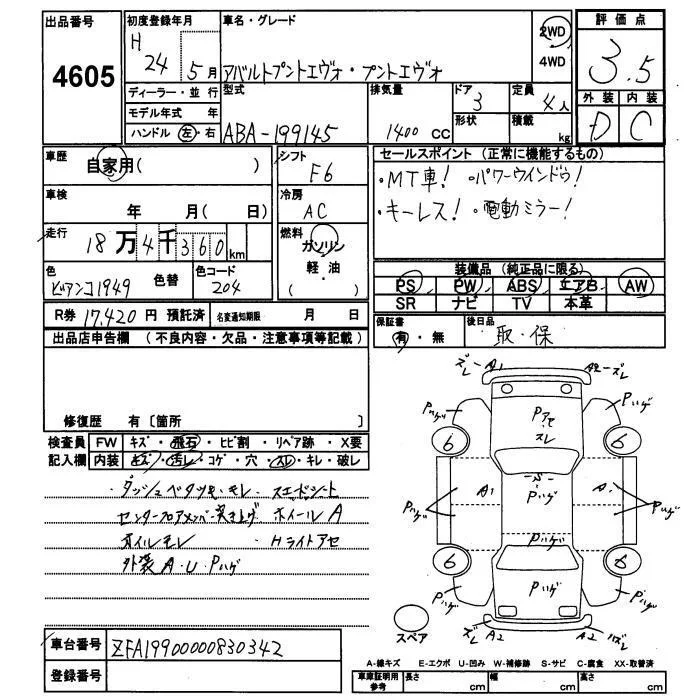 出品番号 4605
初度登録年月 H 24 5月
車名・グレード アバルトプントエヴォ・プントエヴォ
2WD
4WD
評価点 3.5
ディーラー・並行
モデル年式 年
ハンドル 左・右
型式 ABA-199145
排気量 1400 CC
ドア 3
形状
定員 4人
積載 kg
外装 内装
D C
車歴 自家用( )
シフト F6
セールスポイント (正常に機能するもの)
・MT車! ・パワーウインドウ!
・キーレス! ・電動ミラー!
車検 年 月( 日)
冷房 AC
走行 18万4千360km
燃料 ガソリン
軽・油
・( )
色 ビアンコ1949 色替
色コード 204
装備品 (純正品に限る)
PS PW ABS エアB AW
SR ナビ TV 本革
R券 17,420 円 預託済 名変通知期限 月 日
保証書 有・無
後日品 取・保
出品店申告欄 (不良内容・欠品・注意事項等記載)
修復歴 有〔箇所 〕
検査員 FW キズ・飛石・ヒビ割・リペア跡・X要
記入欄 内装 キズ・汚レ・コゲ・穴・スレ・キレ・破レ
・ダッシュベタツキ・モレ・スエードシート
センターフロアメンバー突き上げ ホイールA
オイルモレ ・Hライトアセ
外装 A・U・Pハゲ
ズレ A1 A2 ズレ
Pハゲ Pアセ スレ Pハゲ
6 6
S
Pハゲ A1 Pハゲ A1 Pハゲ
Pハゲ
6 6
Pハゲ Pハゲ Pハゲ
スペア
ズレ A2 A2 ズレ
車台番号 ZFA19900000830342
登録番号
A-線キズ E-エクボ U-凹み W-補修跡 S-サビ C-腐食 XX-取替済
車庫証明用参考 長さ cm 幅 cm 高さ cm